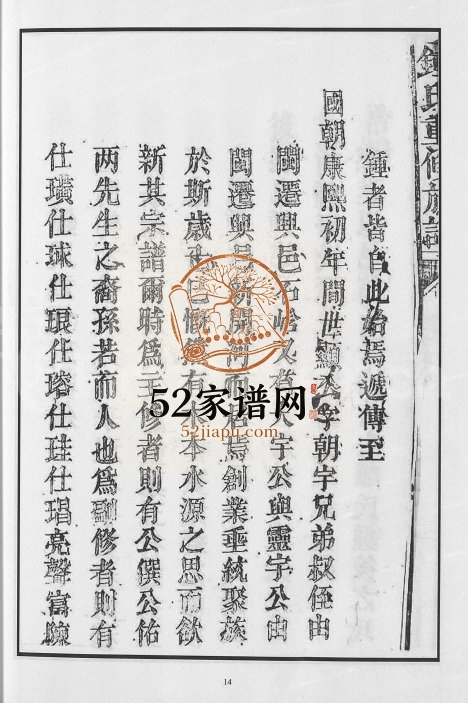 鍾氏重修族譜
鍾者皆自此始焉遞傳至
國朝康熙初年間世顯公字朝宇兄弟叔侄由
閩遷興邑石 公與靈宇公由
閩遷興 新開 而 焉創業垂統聚族
於斯歲 有 本水源之思而欲
新其宗譜爾時為主修者則有公僎公佑
两先生之裔孫若而人也為副修者則有
仕璜仕球仕琅仕瑢仕珪仕瑁亮聲富
52家谱网
52jiapu.com
14